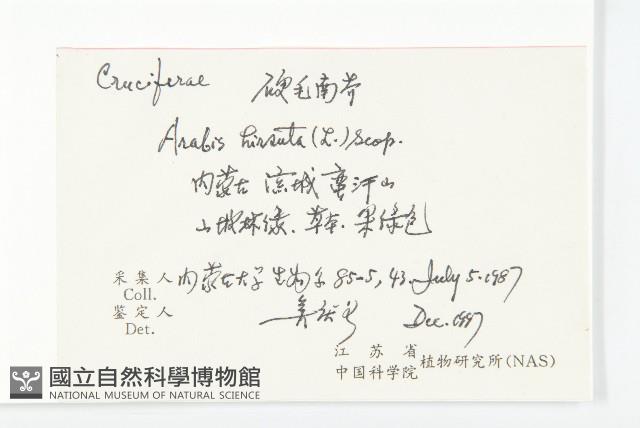 Cruciferae 硬毛南芥
Arabis hirsuta (L.) Scop.
内蒙古 凉城 蛮汗山
山坡林缘. 草本. 果绿色
采集人 内蒙古大学生物系 85-5, 43. July 5. 1987
Coll.
鉴定人 Dec. 1997
Det.
江苏省
中国科学院 植物研究所(NAS)
國立自然科學博物館
NATIONAL MUSEUM OF NATURAL SCIENCE